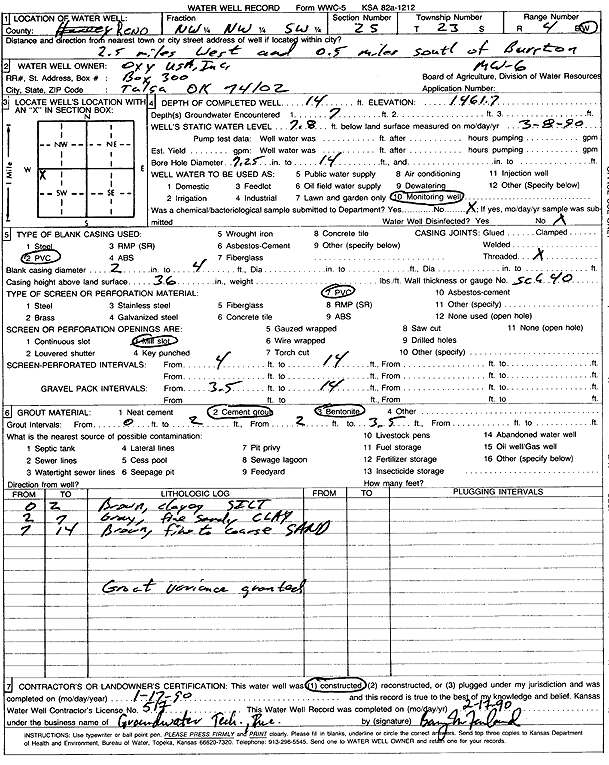 WATER WELL RECORD Form WWC-5 KSA 82a-1212
1 LOCATION OF WATER WELL: Fraction Section Number Township Number Range Number
County: Reno NW ¼ NW ¼ SW ¼ 25 T 23 S R 4 E/W
Distance and direction from nearest town or city street address of well if located within city?
2.5 miles West and 0.5 miles south of Burrton
2 WATER WELL OWNER: Oxy USA, Inc. MW-6
RR#, St. Address, Box # : Box 300 Board of Agriculture, Division of Water Resources
City, State, ZIP Code : Tulsa OK 74102 Application Number:
3 LOCATE WELL'S LOCATION WITH AN "X" IN SECTION BOX:
N
NW NE
W X E
SW SE
S
1 Mile
4 DEPTH OF COMPLETED WELL 14 ft. ELEVATION: 1461.7
Depth(s) Groundwater Encountered 1. 7 ft. 2. ft. 3. ft.
WELL'S STATIC WATER LEVEL 7.8 ft. below land surface measured on mo/day/yr 3-8-90
Pump test data: Well water was ft. after hours pumping gpm
Est. Yield gpm: Well water was ft. after hours pumping gpm
Bore Hole Diameter 7.25 in. to 14 ft., and in. to ft.
WELL WATER TO BE USED AS: 5 Public water supply 8 Air conditioning 11 Injection well
1 Domestic 3 Feedlot 6 Oil field water supply 9 Dewatering 12 Other (Specify below)
2 Irrigation 4 Industrial 7 Lawn and garden only 10 Monitoring well
Was a chemical/bacteriological sample submitted to Department? Yes No X; If yes, mo/day/yr sample was submitted Water Well Disinfected? Yes No X
5 TYPE OF BLANK CASING USED: 5 Wrought iron 8 Concrete tile CASING JOINTS: Glued Clamped
1 Steel 3 RMP (SR) 6 Asbestos-Cement 9 Other (specify below) Welded
2 PVC 4 ABS 7 Fiberglass Threaded X
Blank casing diameter 2 in. to 4 ft., Dia in. to ft., Dia in. to ft.
Casing height above land surface 36 in., weight lbs./ft. Wall thickness or gauge No. Sch 40
TYPE OF SCREEN OR PERFORATION MATERIAL: 7 PVC 10 Asbestos-cement
1 Steel 3 Stainless steel 5 Fiberglass 8 RMP (SR) 11 Other (specify)
2 Brass 4 Galvanized steel 6 Concrete tile 9 ABS 12 None used (open hole)
SCREEN OR PERFORATION OPENINGS ARE: 5 Gauzed wrapped 8 Saw cut 11 None (open hole)
1 Continuous slot 3 Mill slot 6 Wire wrapped 9 Drilled holes
2 Louvered shutter 4 Key punched 7 Torch cut 10 Other (specify)
SCREEN-PERFORATED INTERVALS: From 4 ft. to 14 ft., From ft. to ft.
From ft. to ft., From ft. to ft.
GRAVEL PACK INTERVALS: From 3.5 ft. to 14 ft., From ft. to ft.
From ft. to ft., From ft. to ft.
6 GROUT MATERIAL: 1 Neat cement 2 Cement grout 3 Bentonite 4 Other
Grout Intervals: From 0 ft. to 2 ft., From 2 ft. to 3.5 ft., From ft. to ft.
What is the nearest source of possible contamination: 10 Livestock pens 14 Abandoned water well
1 Septic tank 4 Lateral lines 7 Pit privy 11 Fuel storage 15 Oil well/Gas well
2 Sewer lines 5 Cess pool 8 Sewage lagoon 12 Fertilizer storage 16 Other (specify below)
3 Watertight sewer lines 6 Seepage pit 9 Feedyard 13 Insecticide storage
Direction from well? How many feet?
FROM TO LITHOLOGIC LOG FROM TO PLUGGING INTERVALS
0 2 Brown, clayey SILT
2 7 Gray, fine sandy CLAY
7 14 Brown, fine to coarse SAND
Grout variance granted
7 CONTRACTOR'S OR LANDOWNER'S CERTIFICATION: This water well was (1) constructed, (2) reconstructed, or (3) plugged under my jurisdiction and was
completed on (mo/day/year) 1-17-90 and this record is true to the best of my knowledge and belief. Kansas
Water Well Contractor's License No. 517 This Water Well Record was completed on (mo/day/yr) 2-17-90
under the business name of Groundwater Tech., Inc. by (signature)
INSTRUCTIONS: Use typewriter or ball point pen. PLEASE PRESS FIRMLY and PRINT clearly. Please fill in blanks, underline or circle the correct answers. Send top three copies to Kansas Department
of Health and Environment, Bureau of Water, Topeka, Kansas 66620-7320. Telephone: 913-296-5545. Send one to WATER WELL OWNER and retain one for your records.